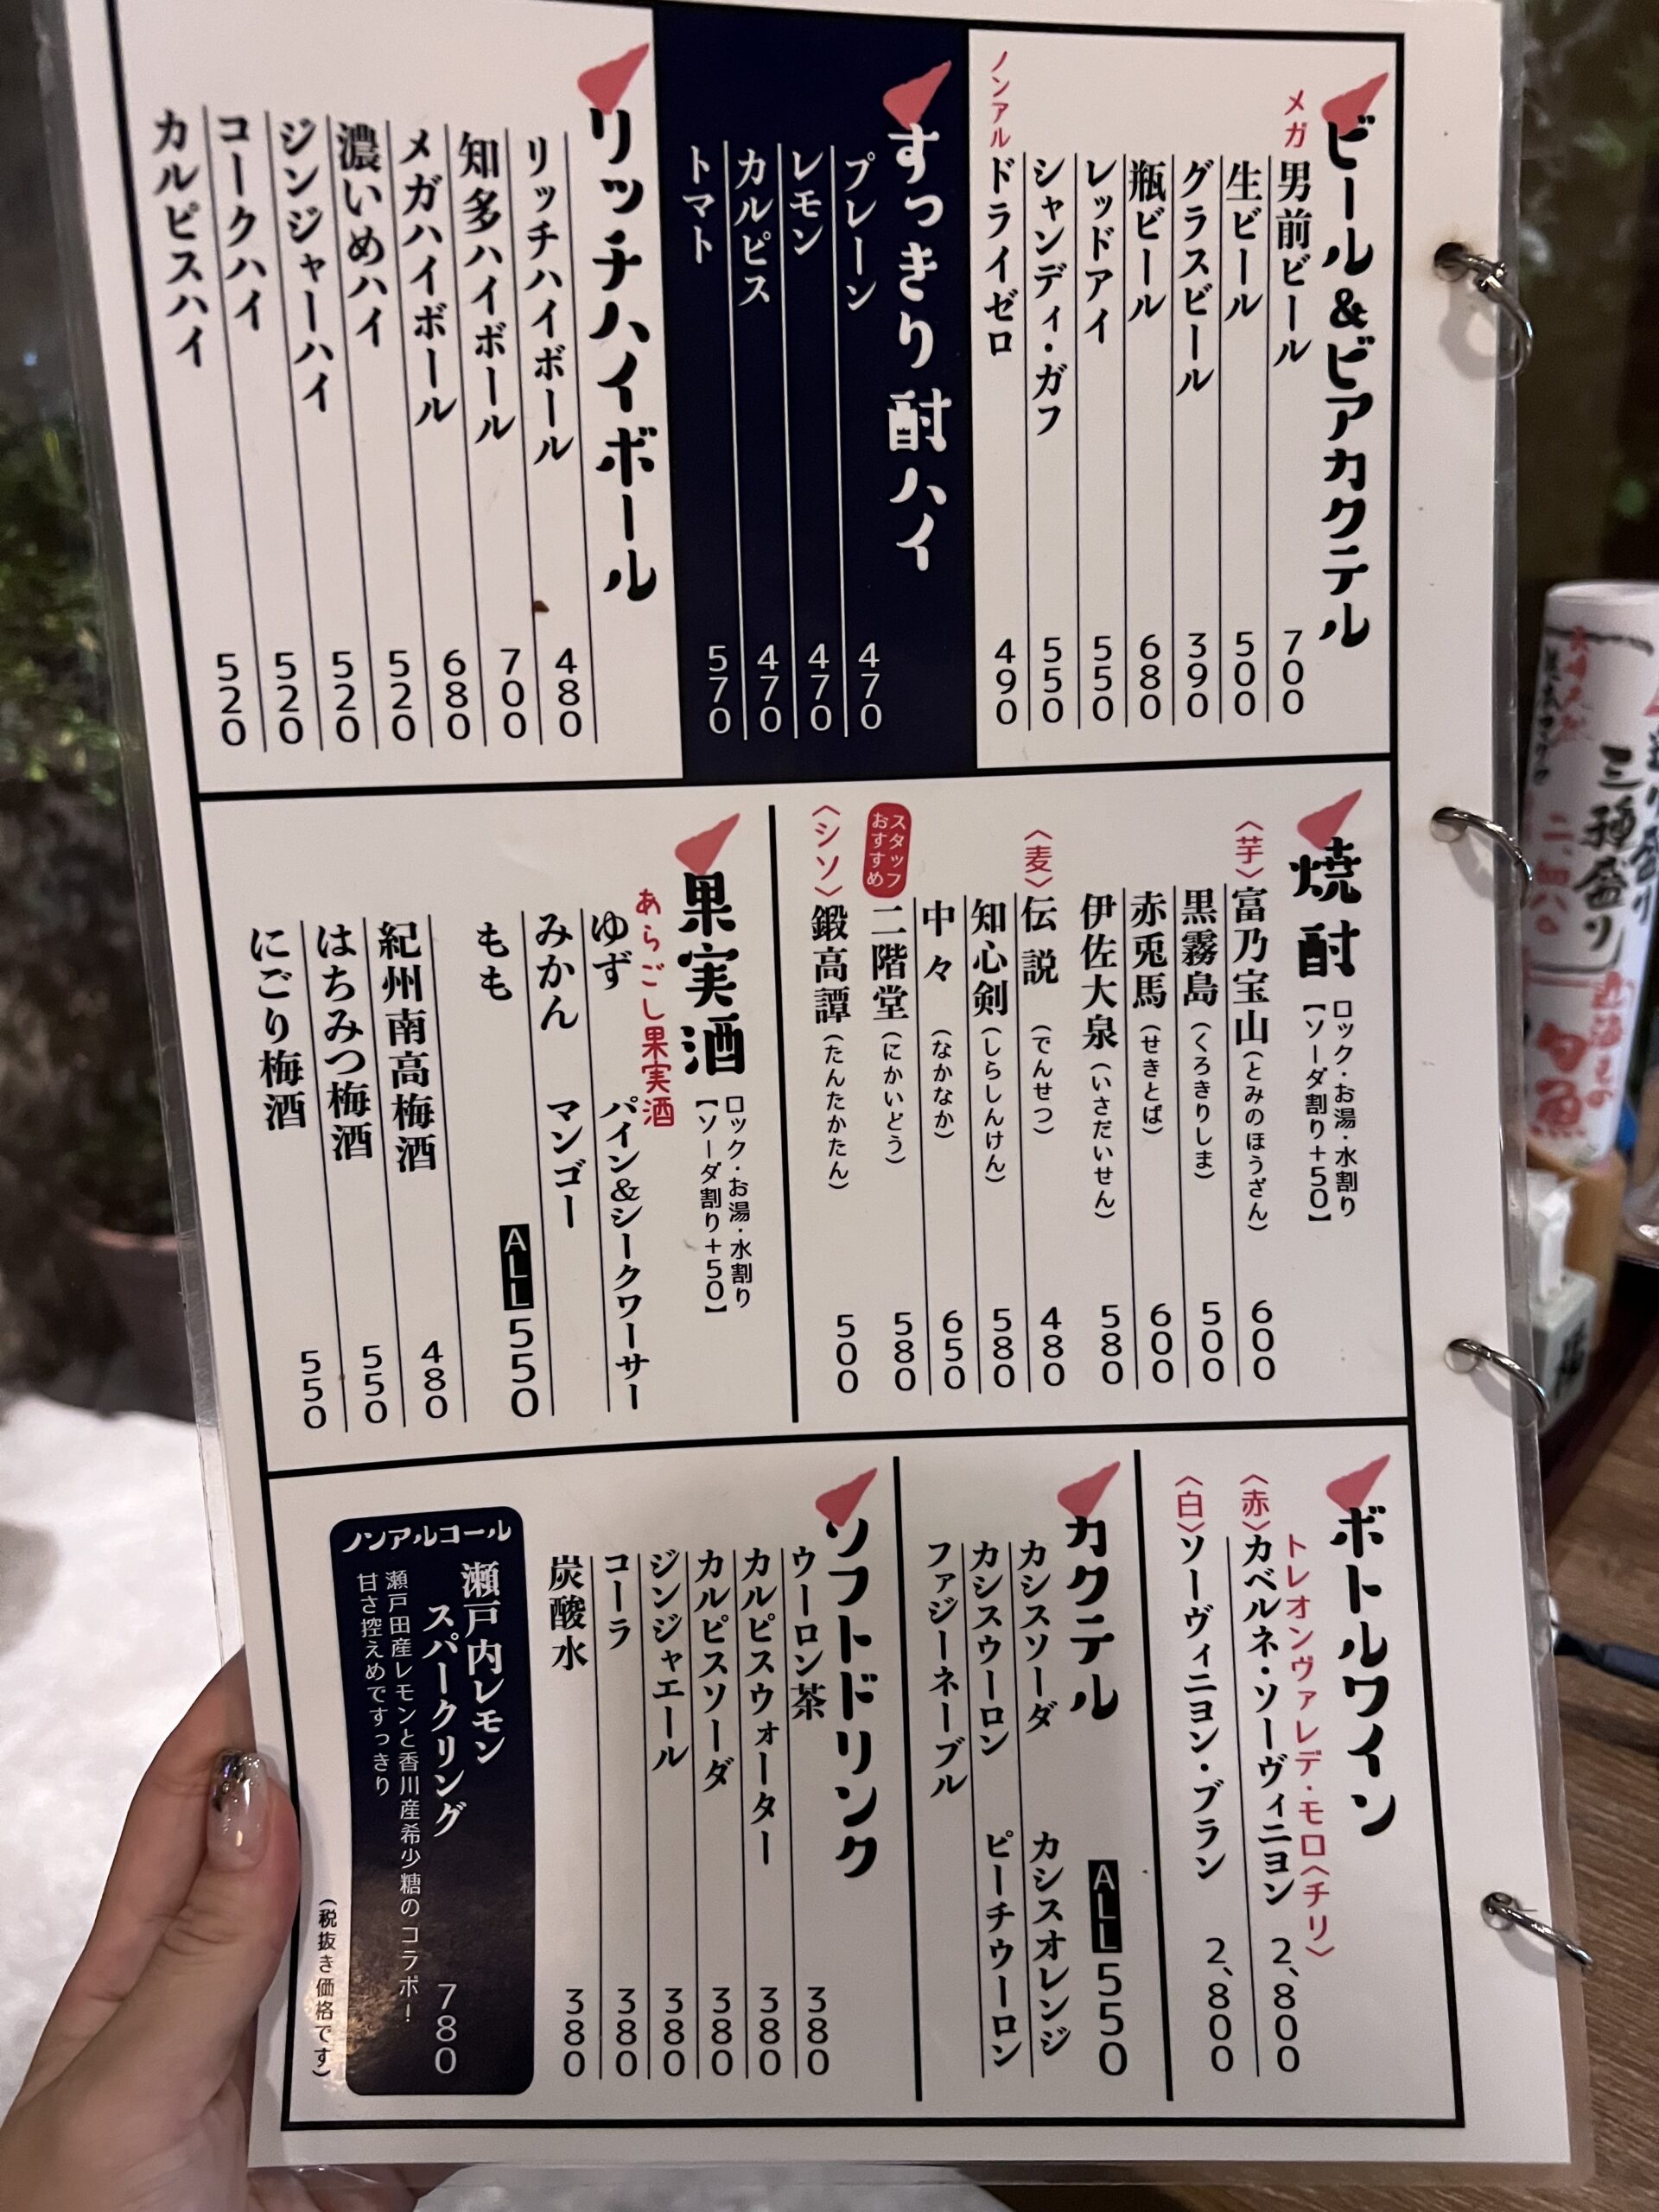 ビール&ビアカクテル
メガ 男前ビール 700
生ビール 500
グラスビール 390
瓶ビール 680
レッドアイ 550
シャンディ・ガフ 550
ノンアル ドライゼロ 490
すっきり酎ハイ
プレーン 470
レモン 470
カルピス 470
トマト 570
リッチハイボール
リッチハイボール 480
知多ハイボール 700
メガハイボール 680
濃いめハイ 520
ジンジャーハイ 520
コークハイ 520
カルピスハイ 520
焼酎
ロック・お湯・水割り
【ソーダ割り+50】
〈芋〉富乃宝山(とみのほうざん) 600
黒霧島(くろきりしま) 500
赤兎馬(せきとば) 600
伊佐大泉(いさだいせん) 580
〈麦〉伝説(でんせつ) 480
知心剣(しらしんけん) 580
中々(なかなか) 650
スタッフ
おすすめ
二階堂(にかいどう) 580
〈シソ〉鍛高譚(たんたかたん) 500
果実酒
ロック・お湯・水割り
【ソーダ割り+50】
あらごし果実酒
ゆず パイン&シークワーサー
みかん マンゴー
もも ALL550
紀州南高梅酒 480
はちみつ梅酒 550
にごり梅酒 550
ボトルワイン
トレオンヴァレデ・モロ〈チリ〉
〈赤〉カベルネ・ソーヴィニヨン 2、800
〈白〉ソーヴィニヨン・ブラン 2、800
カクテル ALL550
カシスソーダ カシスオレンジ
カシスウーロン ピーチウーロン
ファジーネーブル
ソフトドリンク
ウーロン茶 380
カルピスウォーター 380
カルピスソーダ 380
ジンジャエール 380
コーラ 380
炭酸水 380
ノンアルコール
瀬戸内レモン
スパークリング 780
瀬戸田産レモンと香川産希少糖のコラボ!
甘さ控えめですっきり
(税抜き価格です)
三種盛り